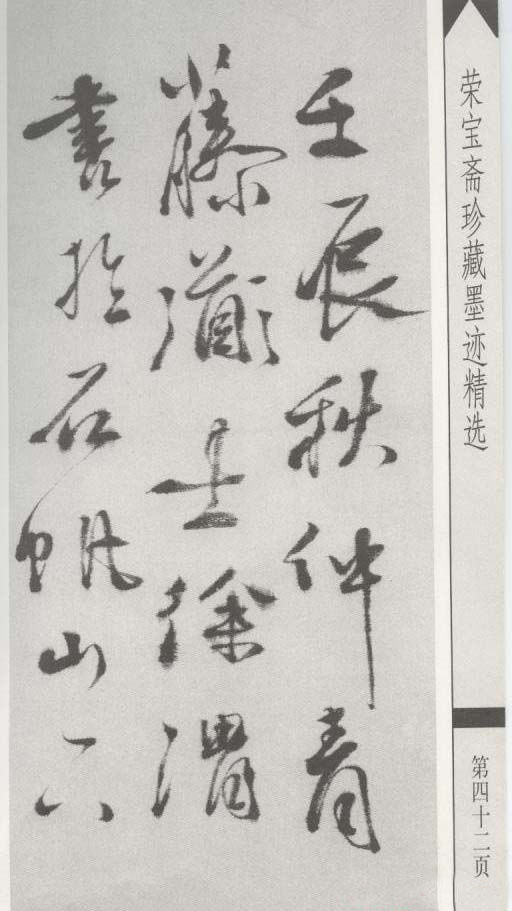 壬辰秋仲青
藤道士徐渭
書於石帆山下
荣宝斋珍藏墨迹精选
第四十二页